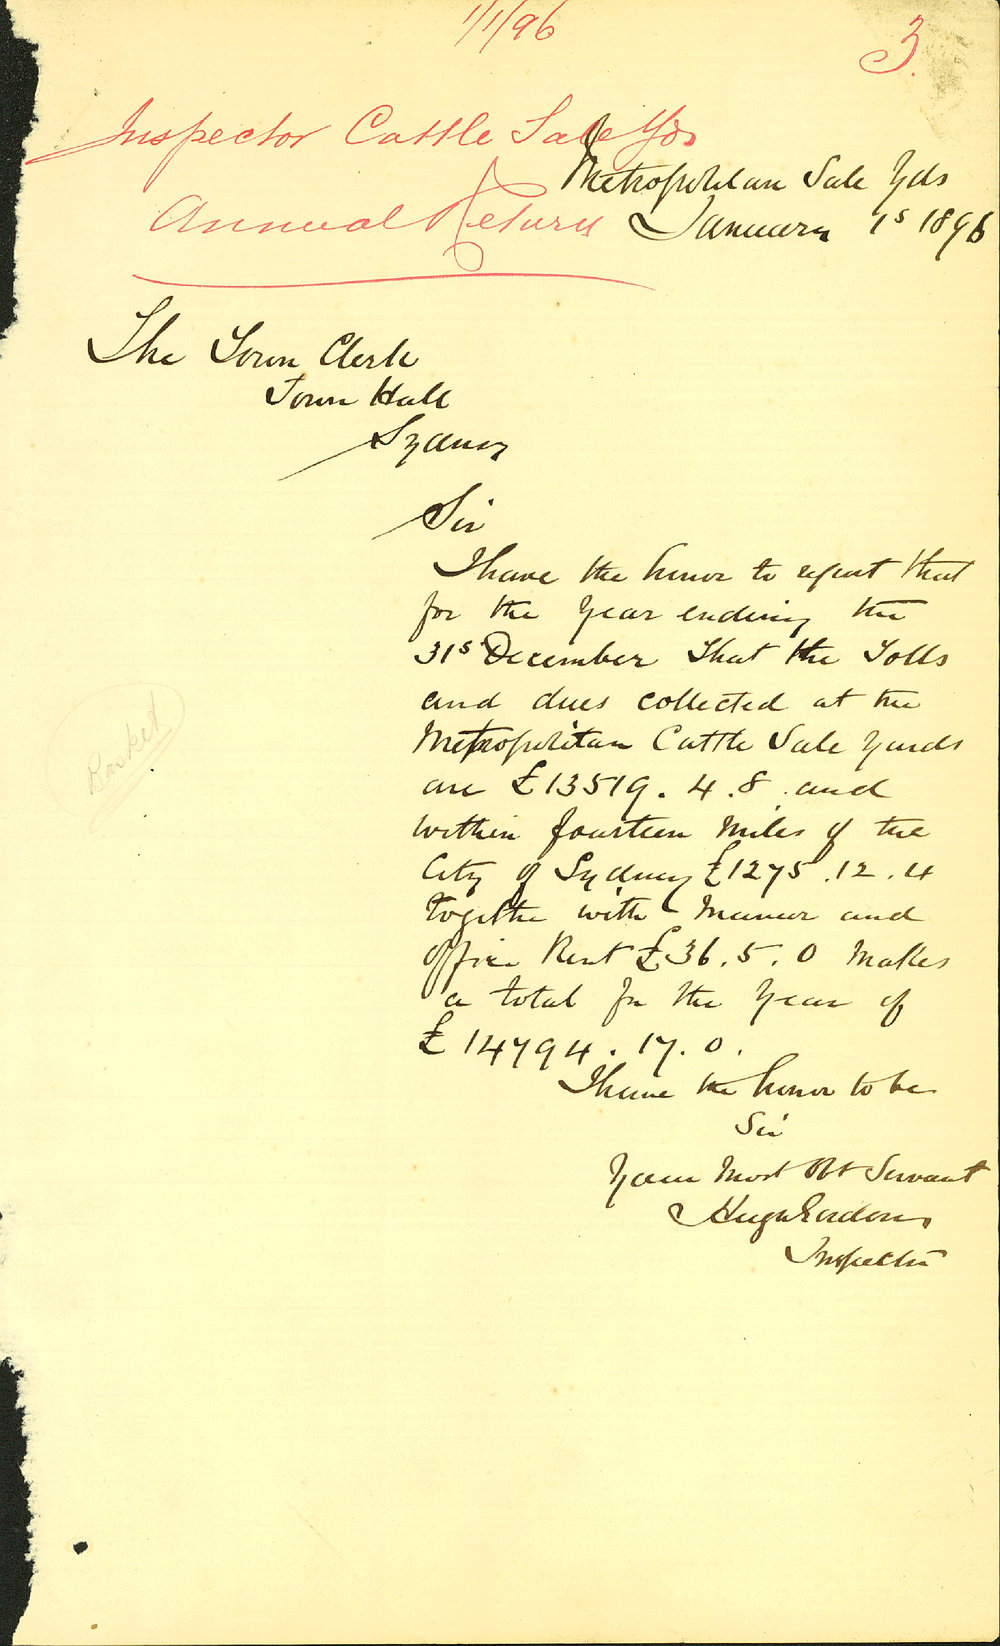 1/1/96
3.
Inspector Cattle Sale Yds
Annual Return
Metropolitan Sale Yds
January 1s 1896
The Town Clerk
Town Hall
Sydney
Sir
I have the honor to report that
for the Year ending the
31s December That the Tolls
and dues collected at the
Metropolitan Cattle Sale Yards
are £13519. 4. 8. and
within fourteen Miles of the
City of Sydney £1275. 12. 4
together with Manure and
Office Rent £36. 5. 0 Makes
a total for the Year of
£14794. 17. 0.
I have the honor to be
Sir
Your Most Obt Servant
Hugh Gordon
Inspector